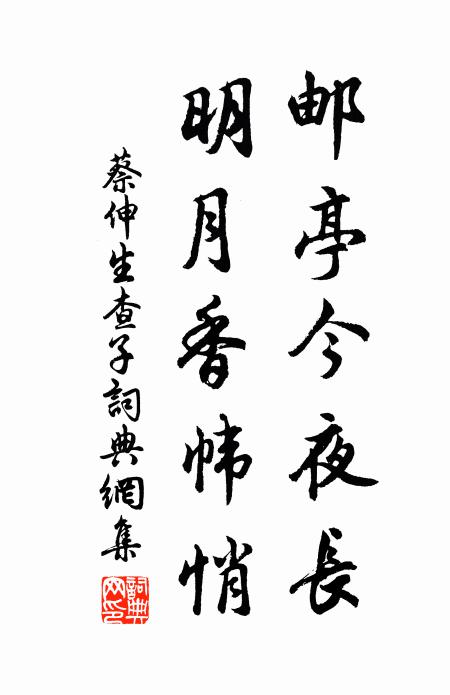 邮亭今夜長
明月香帏悄
蔡伸生查子詞典網集
詞典网印